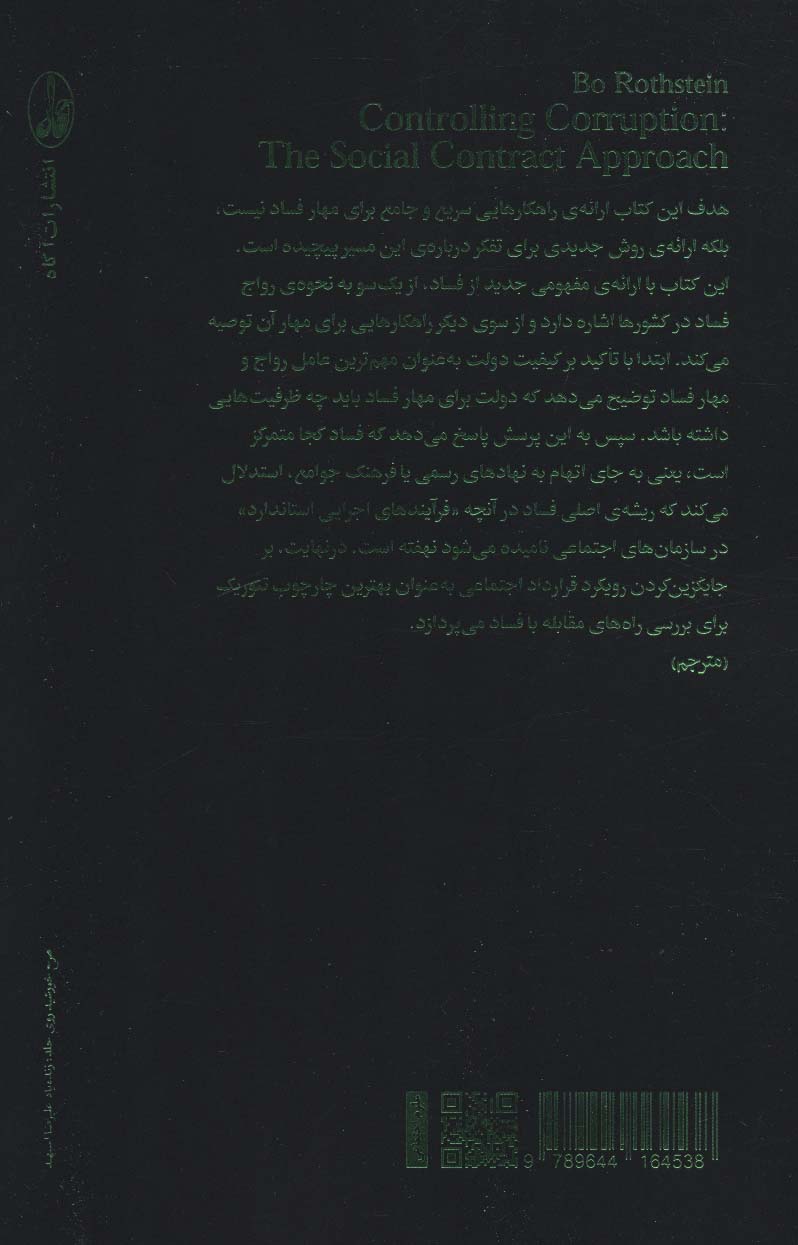 Bo Rothstein
Controlling Corruption:
The Social Contract Approach
هدف این کتاب ارائه‌ی راهکارهایی سریع و جامع برای مهار فساد نیست،
بلکه ارائه‌ی روش جدیدی برای تفکر درباره‌ی این مسیر پیچیده است.
این کتاب با ارائه‌ی مفهومی جدید از فساد، از یک‌سو به نحوه‌ی رواج
فساد در کشورها اشاره دارد و از سوی دیگر راهکارهایی برای مهار آن توصیه
می‌کند. ابتدا با تأکید بر کیفیت دولت به‌عنوان مهم‌ترین عامل رواج و
مهار فساد توضیح می‌دهد که دولت برای مهار فساد باید چه ظرفیت‌هایی
داشته باشد. سپس به این پرسش پاسخ می‌دهد که فساد کجا متمرکز
است، یعنی به جای اتهام به نهادهای رسمی یا فرهنگ جوامع، استدلال
می‌کند که ریشه‌ی اصلی فساد در آنچه «فرآیندهای اجرایی استاندارد»
در سازمان‌های اجتماعی نامیده می‌شود نهفته است. درنهایت، بر
جایگزین‌کردن رویکرد قرارداد اجتماعی به‌عنوان بهترین چارچوب تئوریک
برای بررسی راه‌های مقابله با فساد می‌پردازد.
(مترجم)
انتشارات آگاه
9 789644 164538